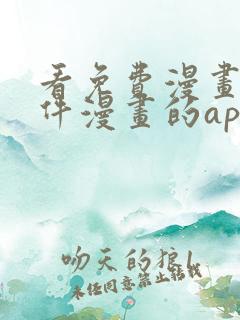 看免費漫畫
件漫畫的ap
吻天的狼
未经同意禁止转载